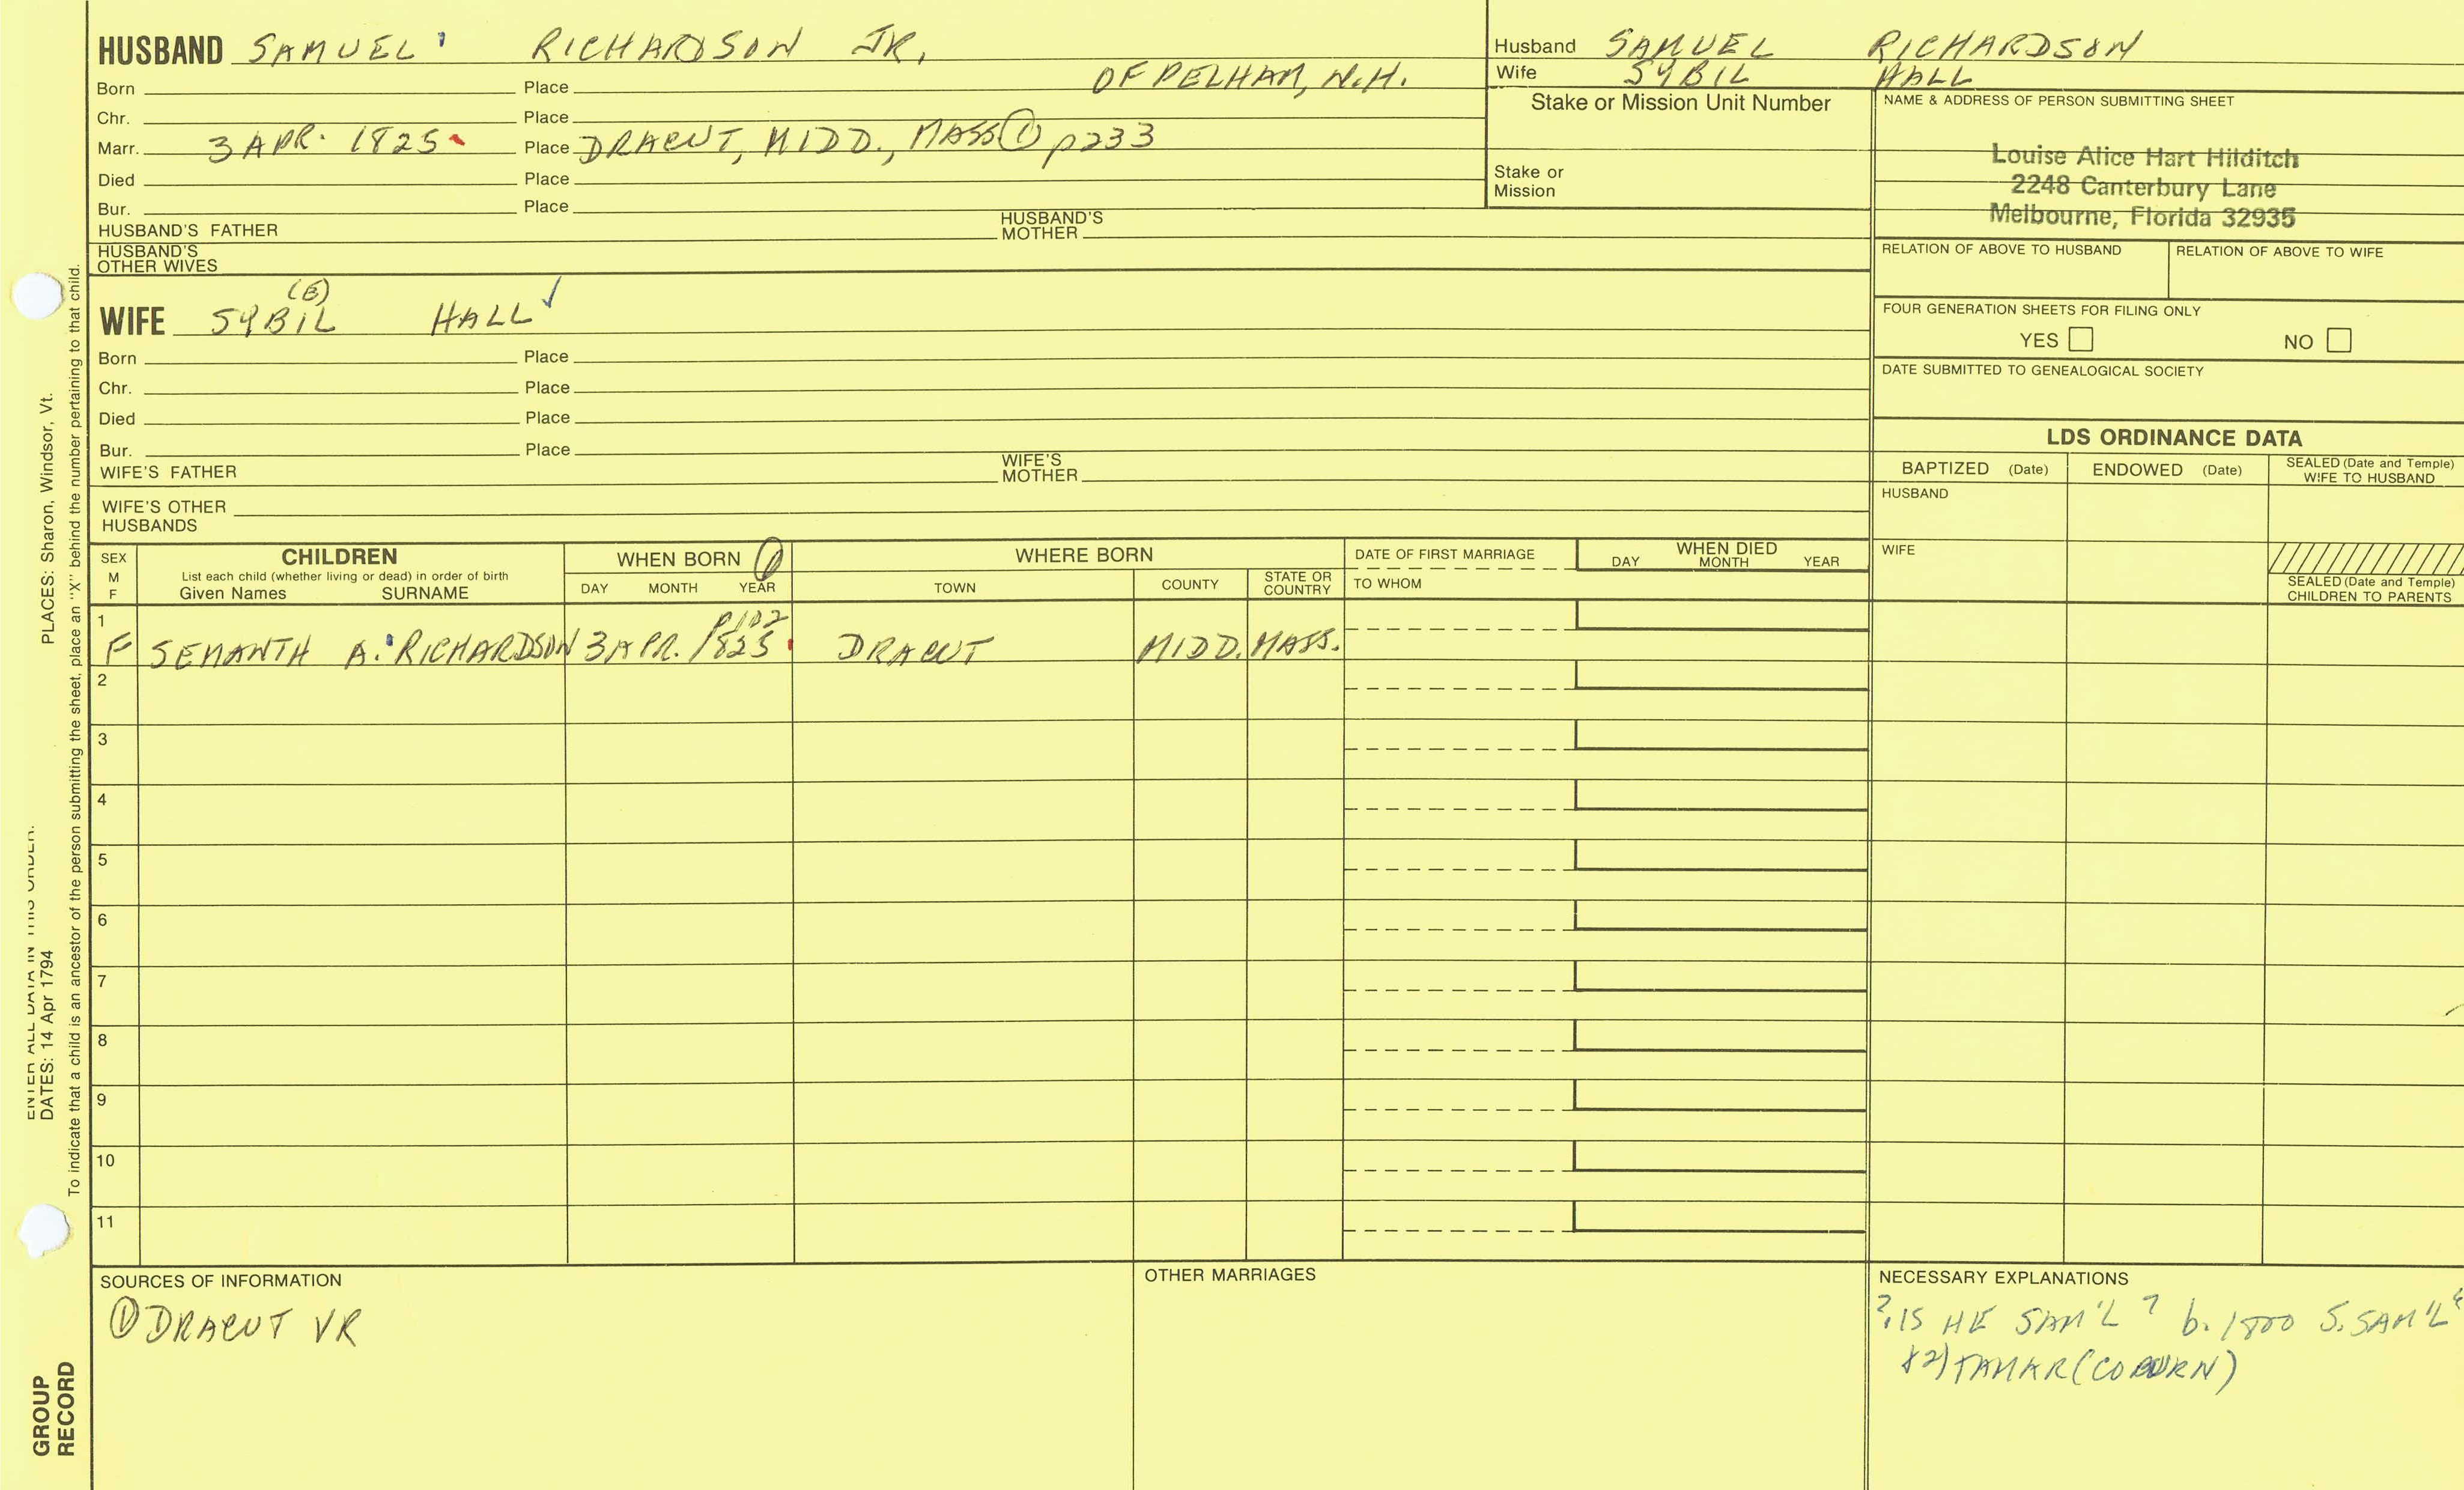 HUSBAND SAMUEL RICHARDSON JR.
Born Place OF PELHAM, N.H.
Chr. Place
Marr. 3 APR. 1825 Place DRACUT, MIDD., MASS ① p233
Died Place
Bur. Place
HUSBAND'S FATHER HUSBAND'S MOTHER
HUSBAND'S OTHER WIVES
(E)
WIFE SYBIL HALL ✓
Born Place
Chr. Place
Died Place
Bur. Place
WIFE'S FATHER WIFE'S MOTHER
WIFE'S OTHER HUSBANDS
Husband SAMUEL RICHARDSON
Wife SYBIL HALL
Stake or Mission Unit Number
Stake or Mission
NAME & ADDRESS OF PERSON SUBMITTING SHEET
Louise Alice Hart Hilditch
2248 Canterbury Lane
Melbourne, Florida 32935
RELATION OF ABOVE TO HUSBAND RELATION OF ABOVE TO WIFE
FOUR GENERATION SHEETS FOR FILING ONLY
YES NO
DATE SUBMITTED TO GENEALOGICAL SOCIETY
LDS ORDINANCE DATA
BAPTIZED (Date) ENDOWED (Date) SEALED (Date and Temple) WIFE TO HUSBAND
HUSBAND
WIFE
SEALED (Date and Temple) CHILDREN TO PARENTS
SEX M F
CHILDREN
List each child (whether living or dead) in order of birth
Given Names SURNAME
WHEN BORN ①
DAY MONTH YEAR
WHERE BORN
TOWN COUNTY STATE OR COUNTRY
DATE OF FIRST MARRIAGE
TO WHOM
WHEN DIED
DAY MONTH YEAR
1
F SEMANTH A. RICHARDSON 3 APR. 1825 DRACUT MIDD. MASS.
2
3
4
5
6
7
8
9
10
11
SOURCES OF INFORMATION
① DRACUT VR
OTHER MARRIAGES
NECESSARY EXPLANATIONS
? IS HE SAM'L ? b. 1800 S. SAM'L
&2) TAMAR (COBURN)
ENTER ALL DATA IN THIS ORDER.
DATES: 14 Apr 1794 PLACES: Sharon, Windsor, Vt.
To indicate that a child is an ancestor of the person submitting the sheet, place an "X" behind the number pertaining to that child.
GROUP
RECORD